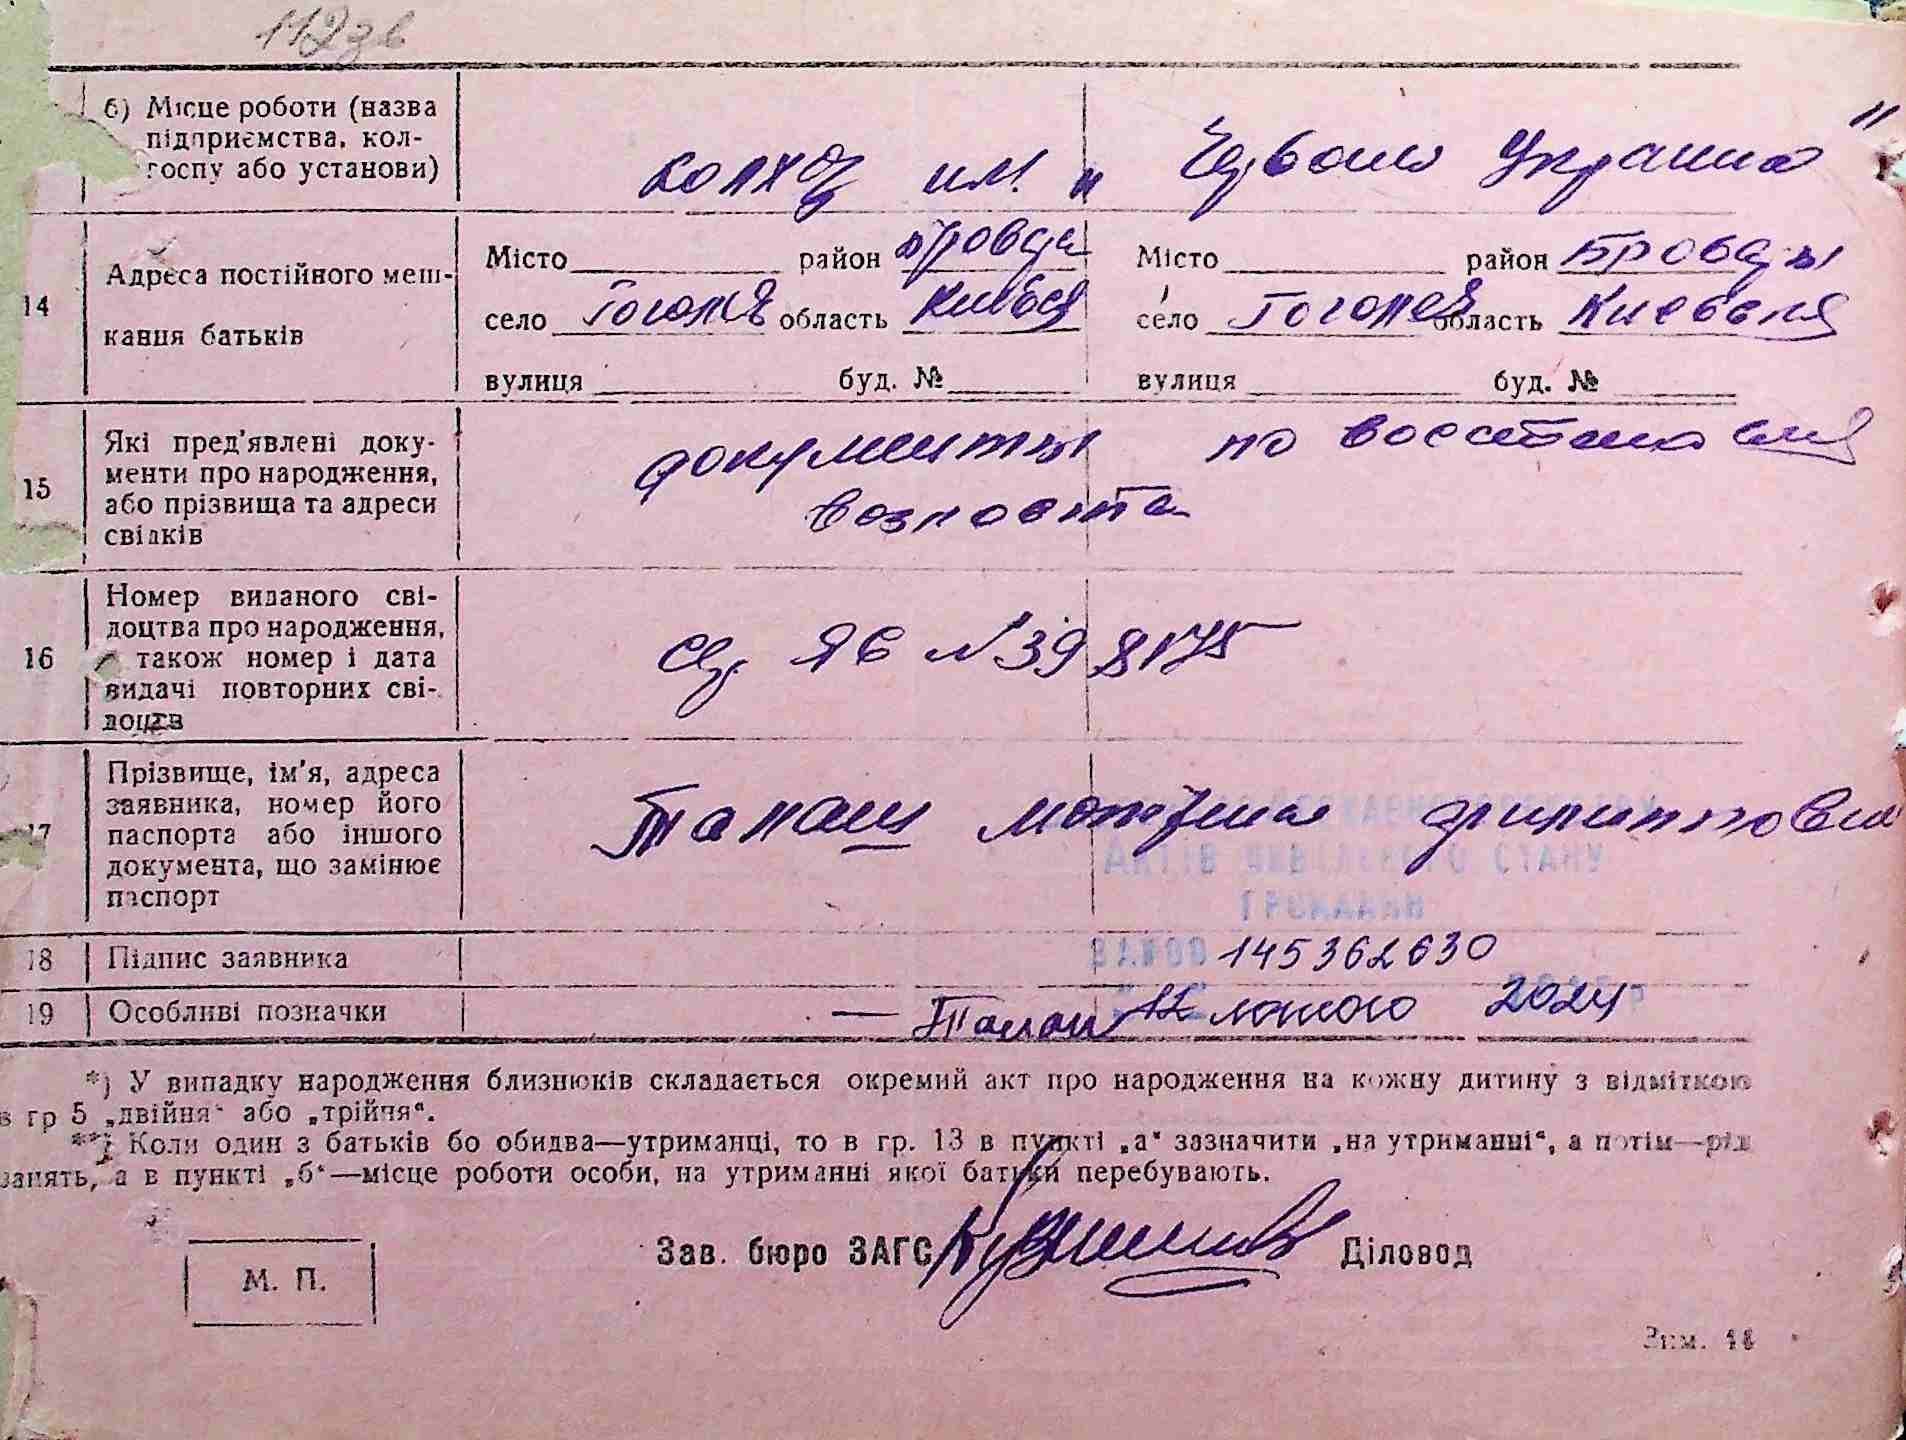 112 зв
б) Місце роботи (назва
підприємства, кол-
госпу або установи)
колхоз им. „ Червона Украина "
14
Адреса постійного меш-
кання батьків
Місто район Бровар
село Гоголев область Киевск
вулиця буд. №
Місто район Бровары
село Гоголев область Киевская
вулиця буд. №
15
Які пред'явлені доку-
менти про народження,
або прізвища та адреси
свідків
документы по восстановлен
возраста
16
Номер виданого сві-
доцтва про народження,
також номер і дата
видачі повторних сві-
доцтв
св ЯЄ №398175
17
Прізвище, ім'я, адреса
заявника, номер його
паспорта або іншого
документа, що замінює
паспорт
Мотрина Филипповна
АКТІВ ЦИВІЛЬНОГО СТАНУ
ГРОМАДЯН
18 Підпис заявника
145362630
19 Особливі позначки
— 12 лютого 2024
*) У випадку народження близнюків складається окремий акт про народження на кожну дитину з відміткою
в гр 5 „двійня“ або „трійня“.
**) Коли один з батьків бо обидва—утриманці, то в гр. 13 в пункті „а“ зазначити „на утриманні“, а потім—рід
занять, а в пункті „б“—місце роботи особи, на утриманні якої батьки перебувають.
Зав. бюро ЗАГС Діловод
М. П.